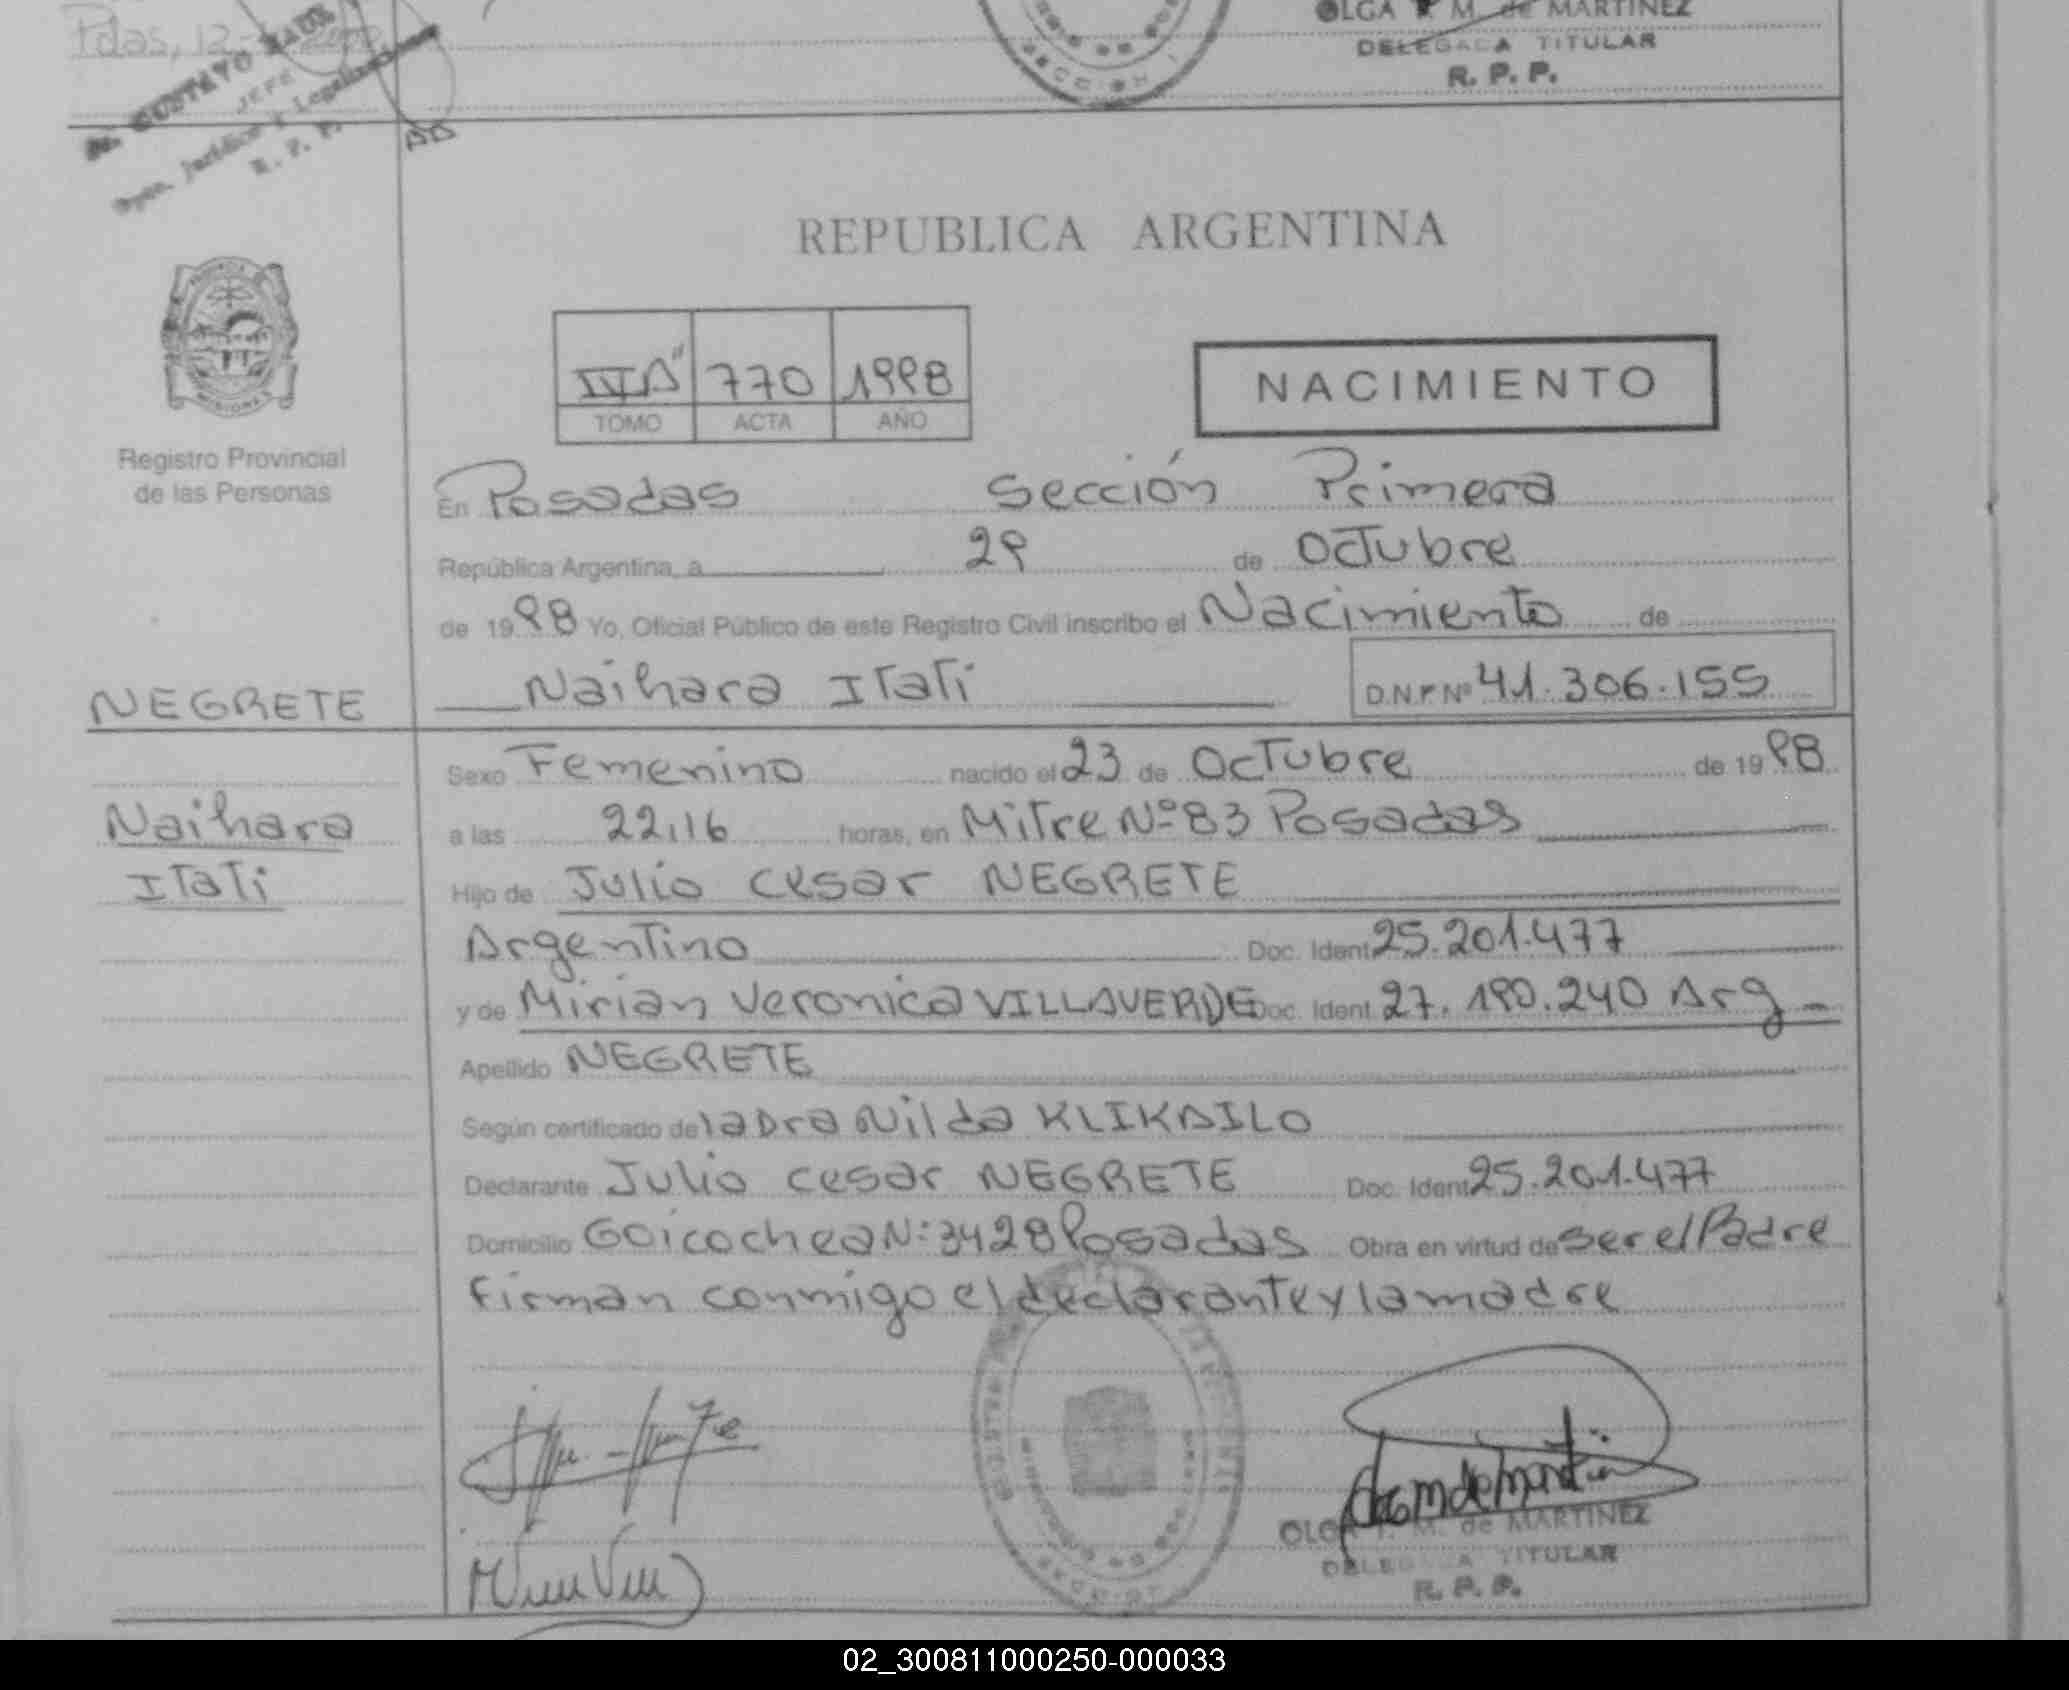 Pdas, 12-
OLGA I. M. de MARTINEZ
DELEGADA TITULAR
R. P. P.
Dr. GUSTAVO
JEFE
Dpto. Jurídico y Legalizaciones
R. P. P.
SECCION 1
REPUBLICA ARGENTINA
770 1998
TOMO ACTA AÑO
NACIMIENTO
PROVINCIA DE
MISIONES
Registro Provincial
de las Personas
En Posadas Sección Primera
República Argentina, a 29 de Octubre
de 1998 Yo, Oficial Público de este Registro Civil inscribo el Nacimiento de
NEGRETE
Naihara Itati D.N.I. Nº 41.306.155
Sexo Femenino nacido el 23 de Octubre de 1998
Naihara
Itati
a las 22,16 horas, en Mitre Nº 83 Posadas
Hijo de Julio Cesar NEGRETE
Argentino Doc. Ident 25.201.477
y de Mirian Veronica VILLAVERDE Doc. Ident. 27.190.240 Arg
Apellido NEGRETE
Según certificado de la Dra Nilda KLIKAILO
Declarante Julio Cesar NEGRETE Doc. Ident 25.201.477
Domicilio Goicochea N: 3428 Posadas Obra en virtud de ser el Padre
Firman conmigo el declarante y la madre
OLGA I. M. de MARTINEZ
DELEGADA TITULAR
R. P. P.
02_300811000250-000033